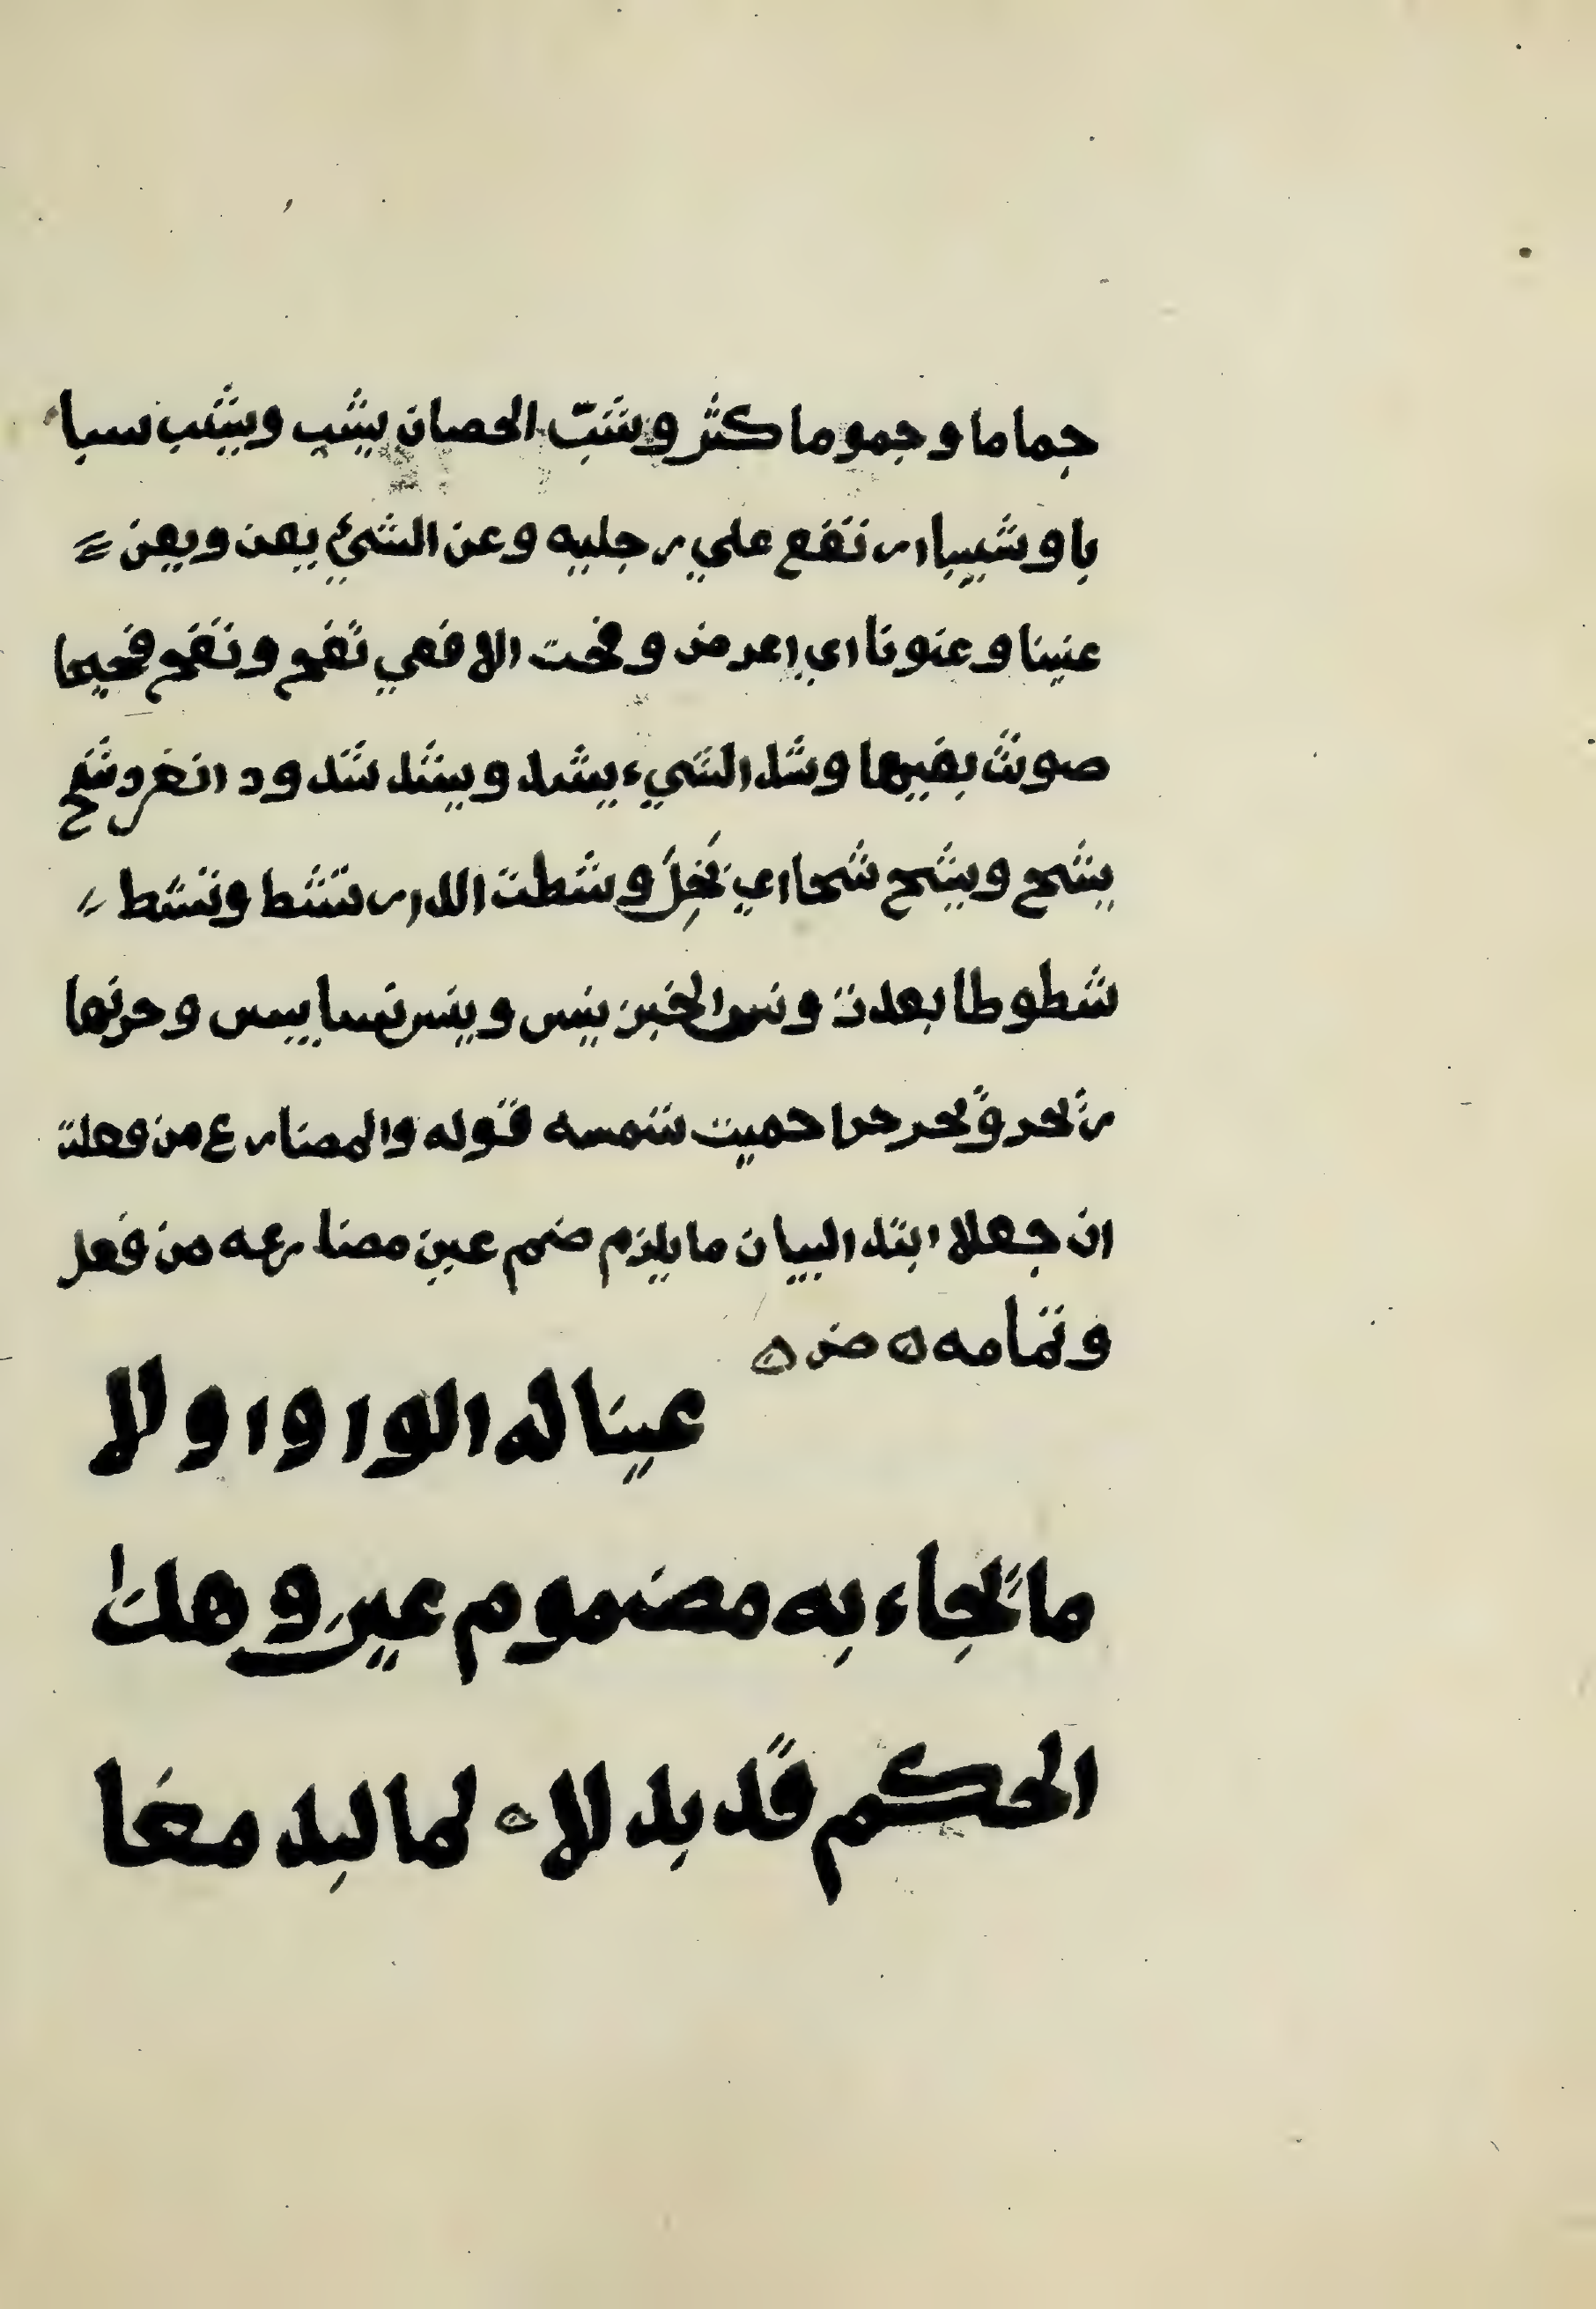 جماما وجموما كثر وشبّ الحصان يشب ويشب سبا
با وشبيبا ارتفع علي رجليه وعن الشيئ يعن ويعن
عنينا وعنونا اي اعرض وفحت الافعي تفح وتفح فحيحا
صوتت بفيها وشد الشيء يشد ويشد شدود انفرد شح
يشح ويشح شحا اي بَخِلَ وشطت الدار تشط وتشط
شطوطا بعدت ونس الخبز ينس وينس نسا يبس وحر نها
ر نحر ويحر حرا حميت شمسه قوله والمضارع من فعلت
ان جعلا ابتد البيان ما يلزم ضم عين مضارعه من فعل
وتمامه ه ض ه
عينا له الواو او لا
ما نجاء به مضموم عين وهذ
الحكم قد بدلا ه لما لبد معا